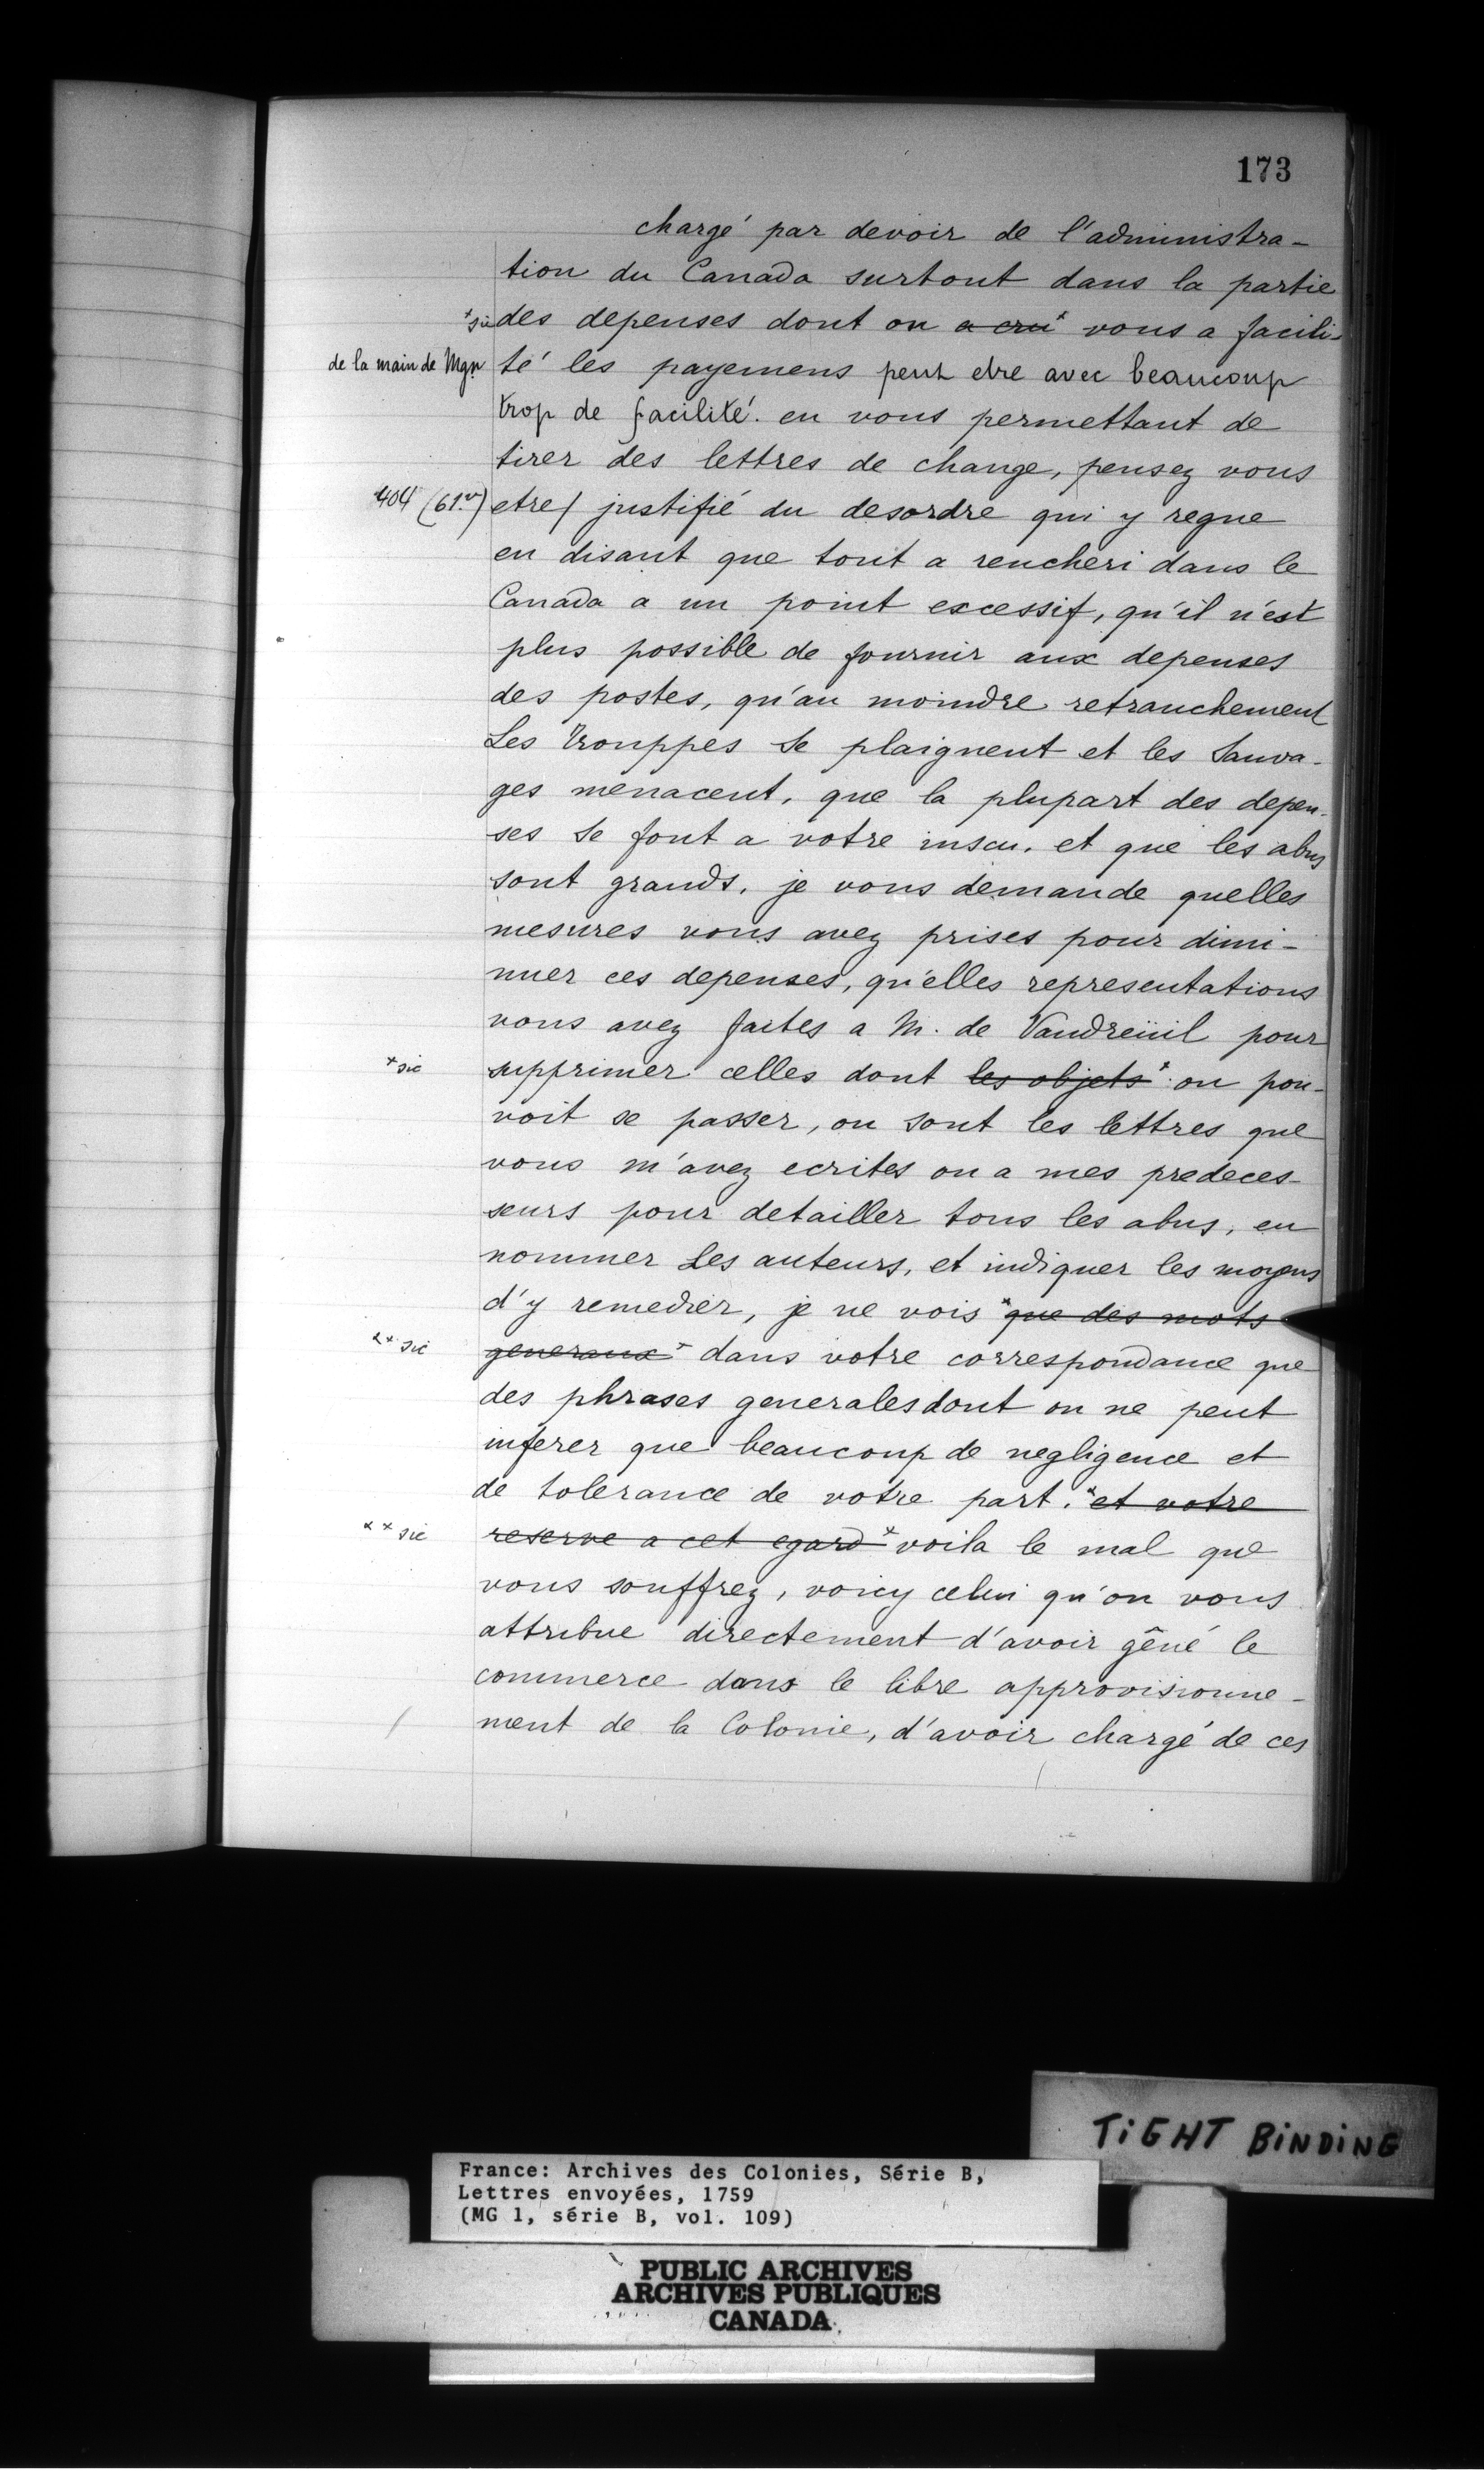 173
chargé par devoir de l'administra-
tion du Canada surtout dans la partie
*sic des depenses dont on a cru* vous a facili-
de la main de Mgr té les payemens peut etre avec beaucoup
trop de facilité. en vous permettant de
tirer des lettres de change, pensez vous
404 (61.v) etre/ justifié du desordre qui y regne
en disant que tout a rencheri dans le
Canada a un point excessif, qu'il n'est
plus possible de fournir aux depenses
des postes, qu'au moindre retranchement
Les trouppes se plaignent et les Sauva-
ges menacent, que la plupart des depen-
ses se font a votre insçu, et que les abus
sont grands, je vous demande quelles
mesures vous avez prises pour dimi-
nuer ces depenses, qu'elles representations
vous avez faites a M. de Vaudreüil pour
*sic supprimer celles dont les objets* on pou-
voit se passer, ou sont les lettres que
vous m'avez ecrites ou a mes predeces-
seurs pour detailler tous les abus, en
nommer Les auteurs, et indiquer les moyens
d'y remedier, je ne vois *que des mots
** sic generaux* dans votre correspondance que
des phrases generales dont on ne peut
inferer que beaucoup de negligence et
de tolerance de votre part. *et votre
** sic reserve a cet egard* voila le mal que
vous souffrez, voicy celui qu'on vous
attribue directement d'avoir gêné le
commerce dans le libre approvisionne-
ment de la Colonie, d'avoir chargé de ces
TIGHT BINDING
France: Archives des Colonies, Série B,
Lettres envoyées, 1759
(MG 1, série B, vol. 109)
PUBLIC ARCHIVES
ARCHIVES PUBLIQUES
CANADA